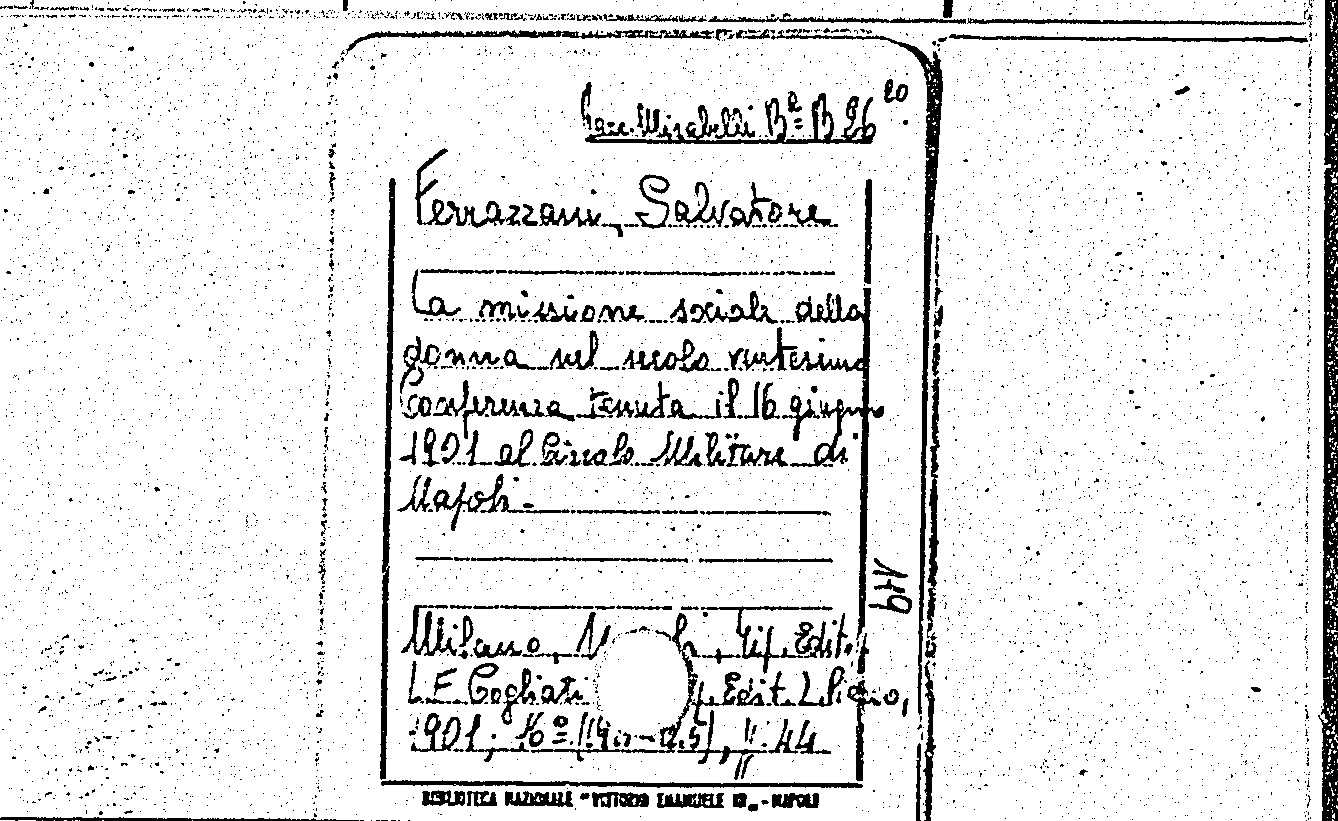 Racc. Mirabelli Bª B 26 20
Ferrazzani, Salvatore
La missione sociale della
donna nel secolo ventesimo
Conferenza tenuta il 16 giugno
1901 al Circolo Militare di
Napoli -
Milano, Tip. Edit.
L. F. Cogliati Edit. L. Pierro,
1901; 16º (19 - 12.5), p. 44
BIBLIOTECA NAZIONALE "VITTORIO EMANUELE III" - NAPOLI